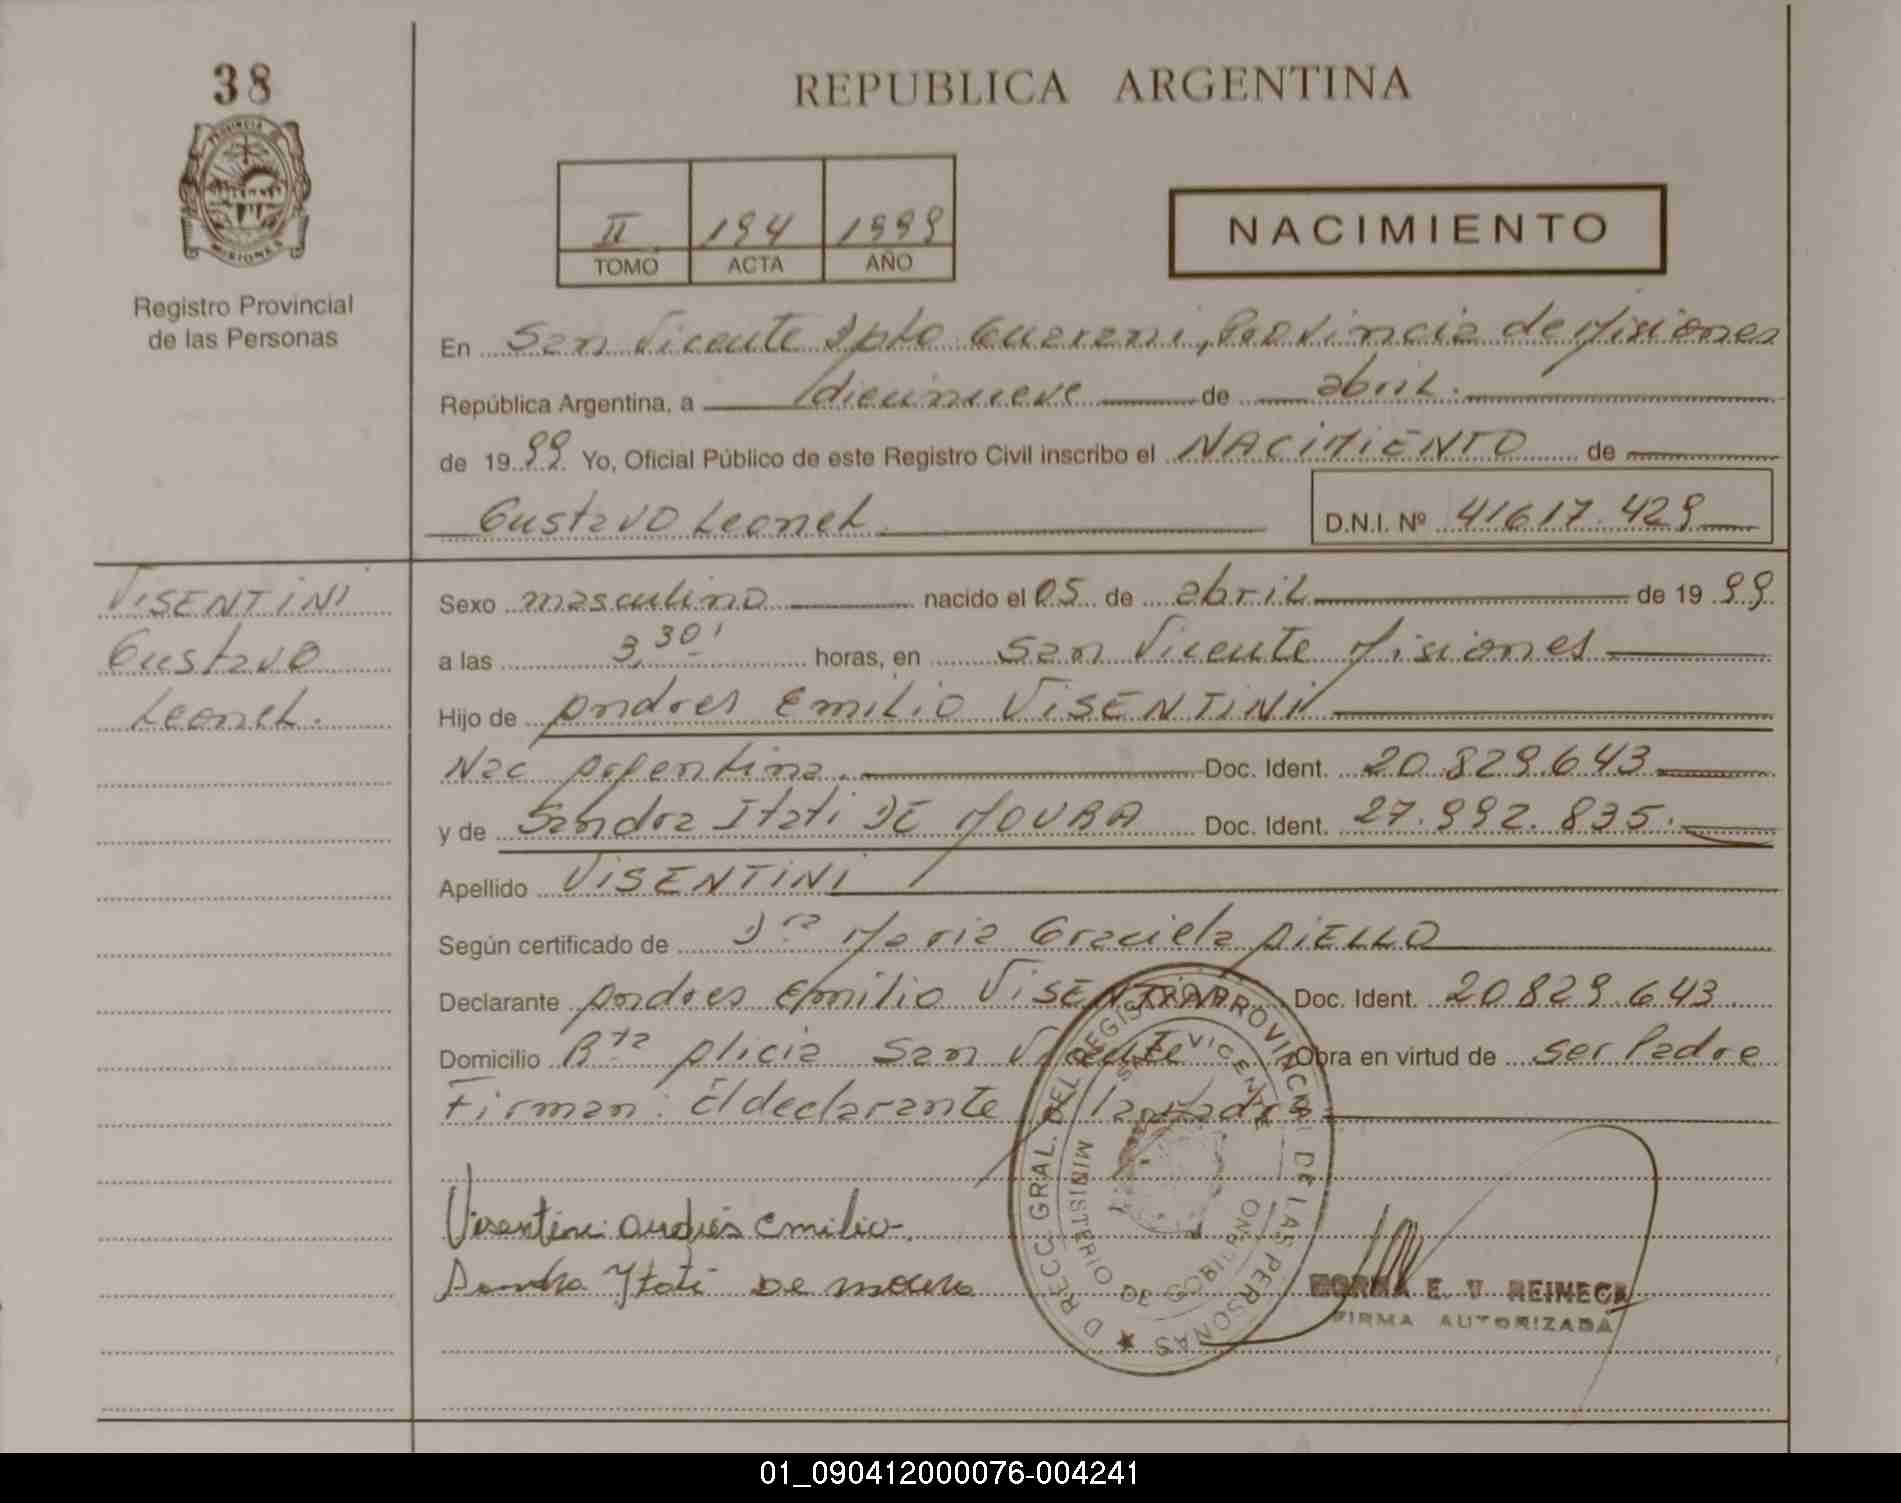 38
REPUBLICA ARGENTINA
PROVINCIA DE MISIONES
Registro Provincial
de las Personas
II 194 1999
TOMO ACTA AÑO
NACIMIENTO
En San Vicente Dpto Guarani, Provincia de Misiones
República Argentina, a diecinueve de abril.
de 1999 Yo, Oficial Público de este Registro Civil inscribo el NACIMIENTO de
Gustavo Leonel
D.N.I. Nº 41617.429
VISENTINI
Gustavo
Leonel.
Sexo masculino nacido el 05 de abril de 1999
a las 3,30' horas, en San Vicente Misiones
Hijo de Andres Emilio VISENTINI
Nac Argentina. Doc. Ident. 20.829.643
y de Sandra Itati DE MOURA Doc. Ident. 27.992.835.
Apellido VISENTINI
Según certificado de Dra Maria Graciela AIELLO
Declarante Andres Emilio VISENTINI Doc. Ident. 20829.643
Domicilio Rta Alicia San Vicente Obra en virtud de ser Padre
Firman: El declarante y la madre
Visentini andrés Emilio.
Sandra Ytati De moura
DIRECC. GRAL. DEL REGISTRO PROVINCIAL DE LAS PERSONAS
SAN VICENTE
MINISTERIO DE GOBIERNO
NORMA E. V. REINECK
FIRMA AUTORIZADA
01_090412000076-004241